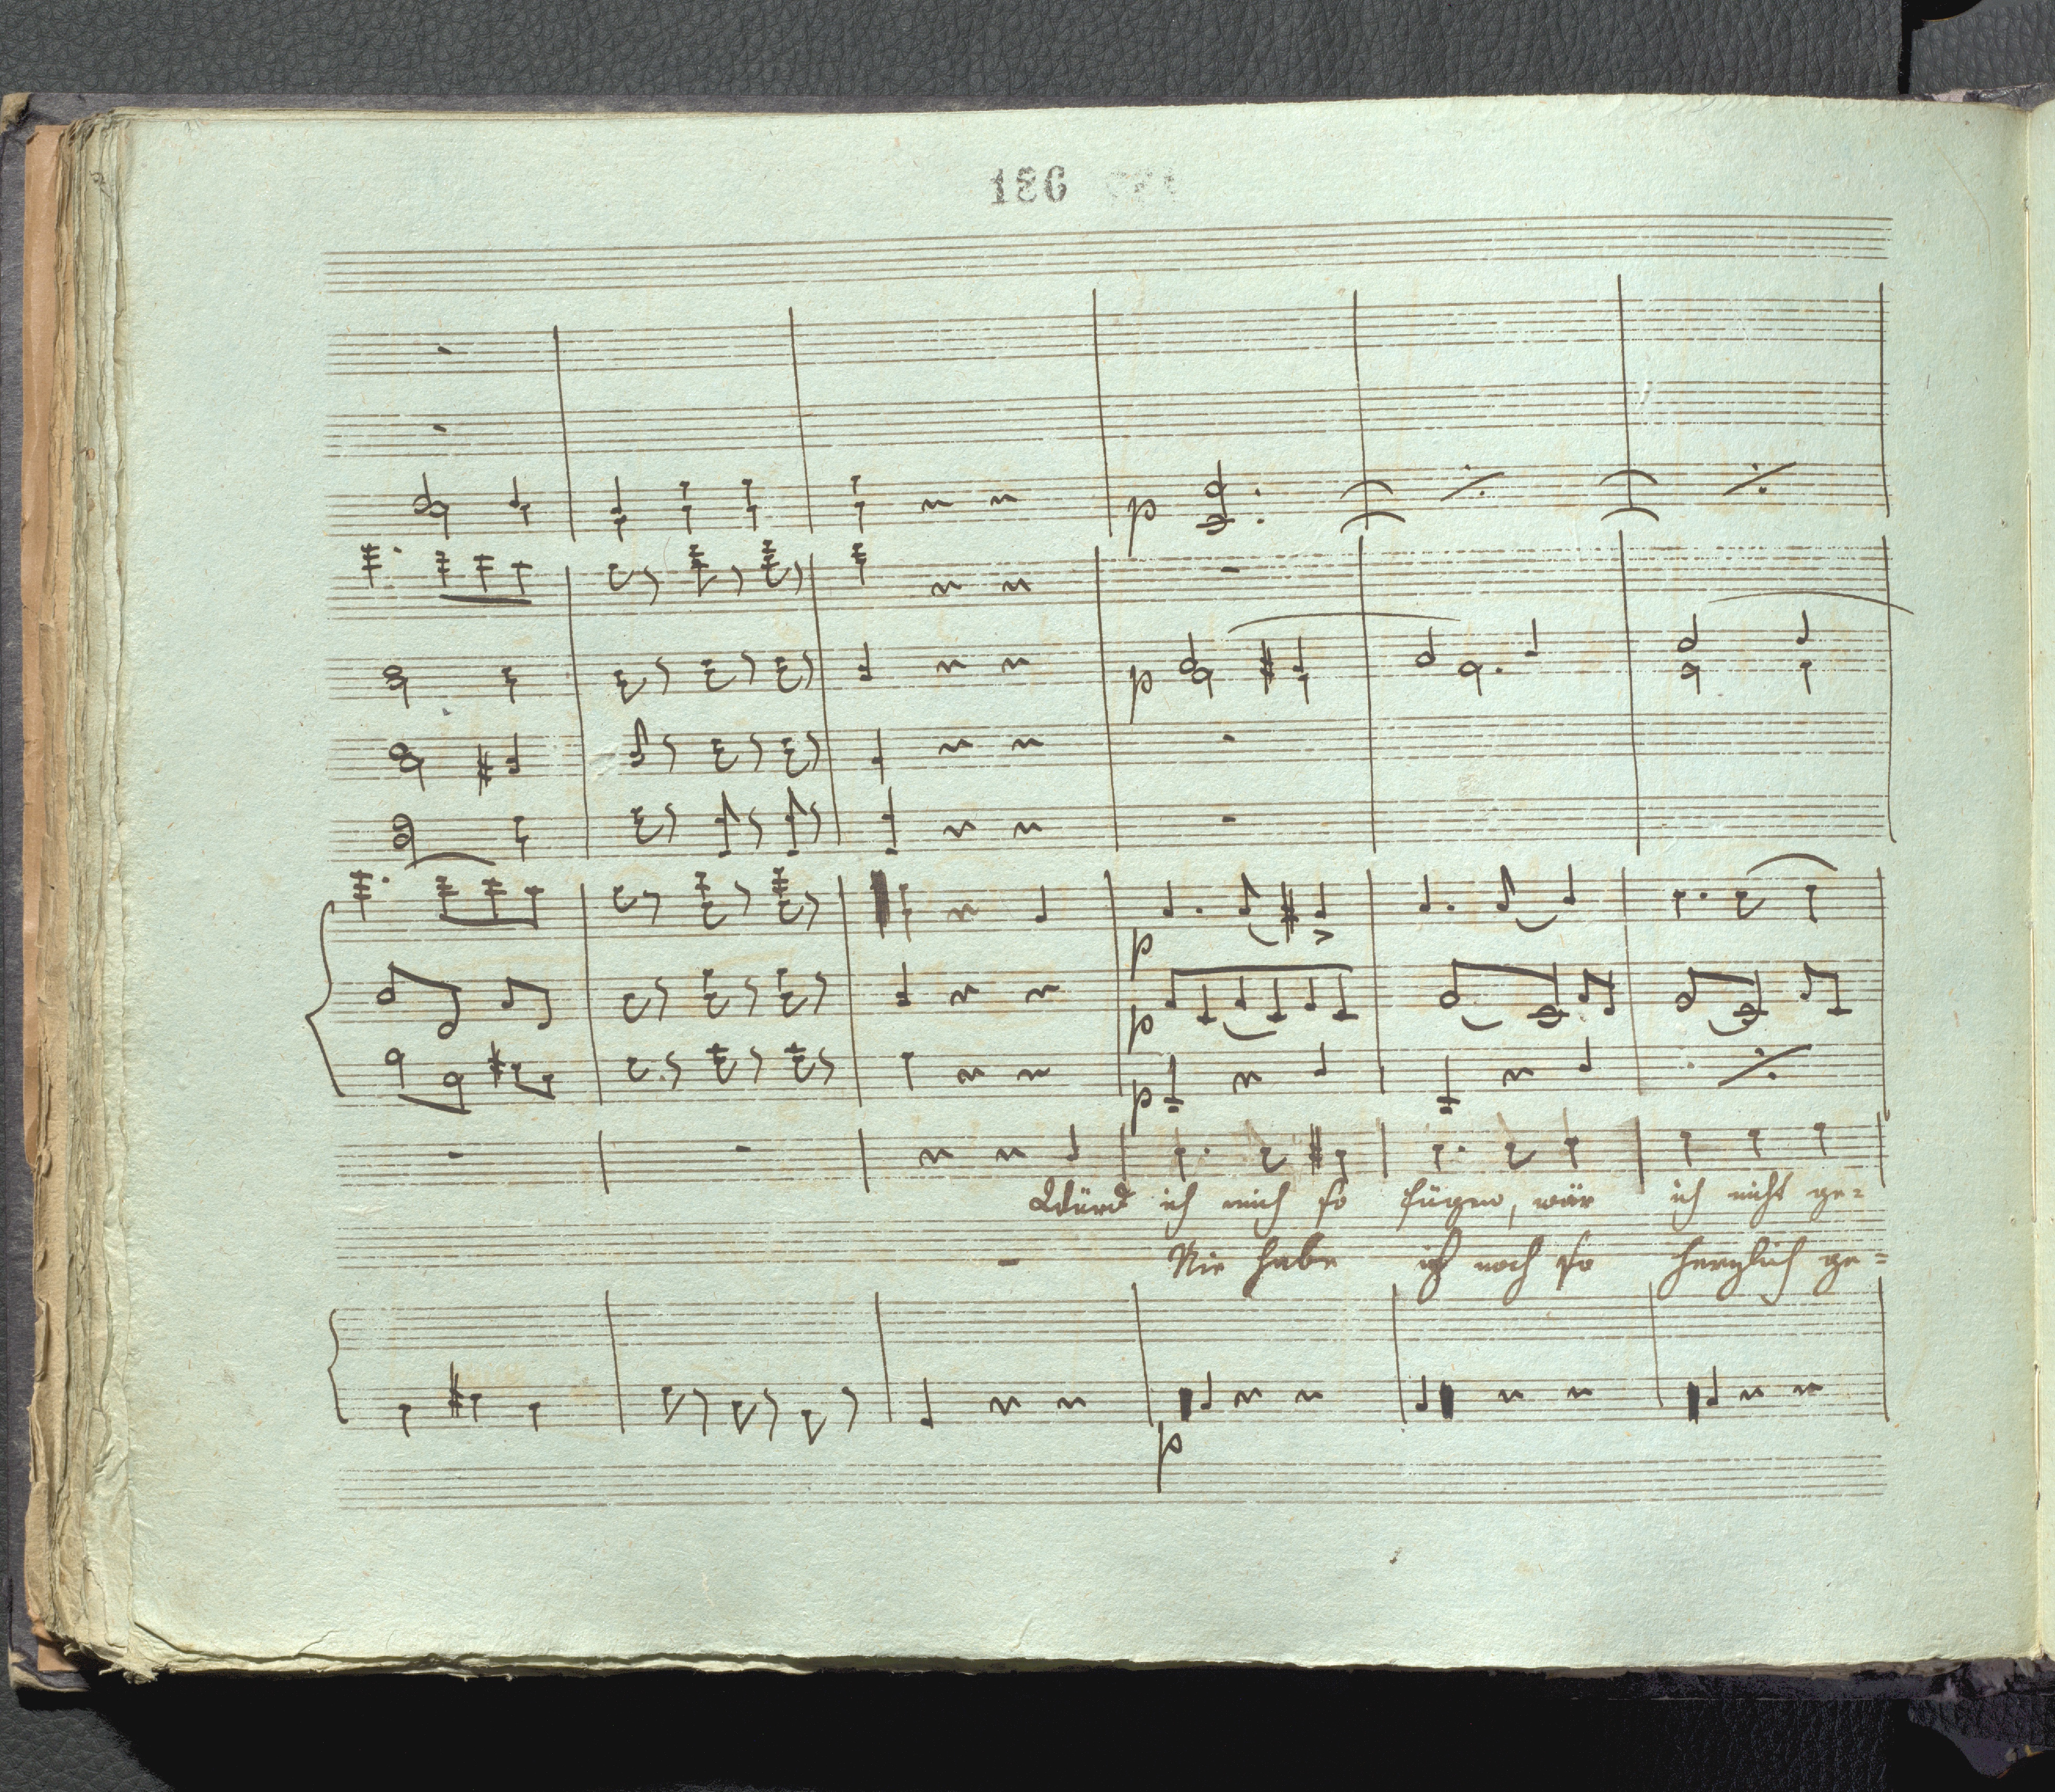 186
p
p
p
p
p
Würd ich mich so fügen, wär ich nicht ge=
Nie habe ich noch so herzlich ge=
p